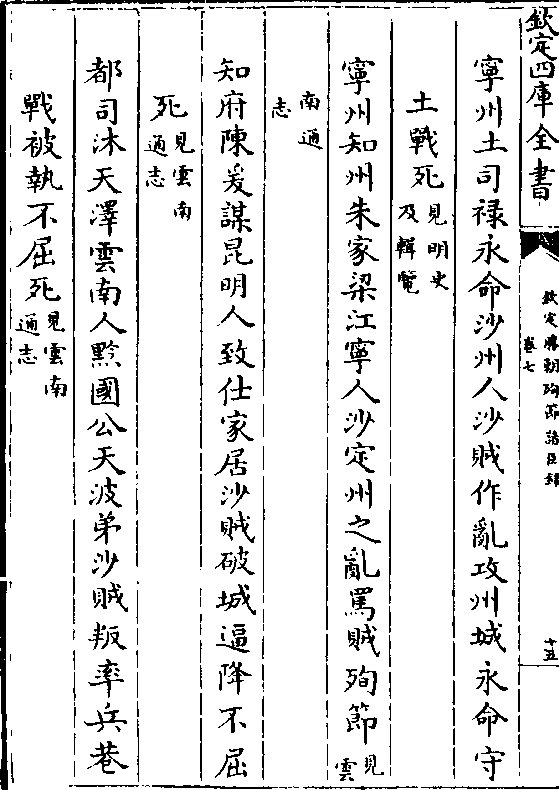 欽定四庫全書
欽定勝朝殉節諸臣錄
卷七
十五
寧州土司祿永命沙州人沙賊作亂攻州城永命守
土戰死見明史及輯覽
寧州知州朱家梁江寧人沙定州之亂罵賊殉節見雲
南通志
知府陳爰謀昆明人致仕家居沙賊破城逼降不屈
死見雲南通志
都司沐天澤雲南人黔國公天波弟沙賊叛率兵巷
戰被執不屈死見雲南通志